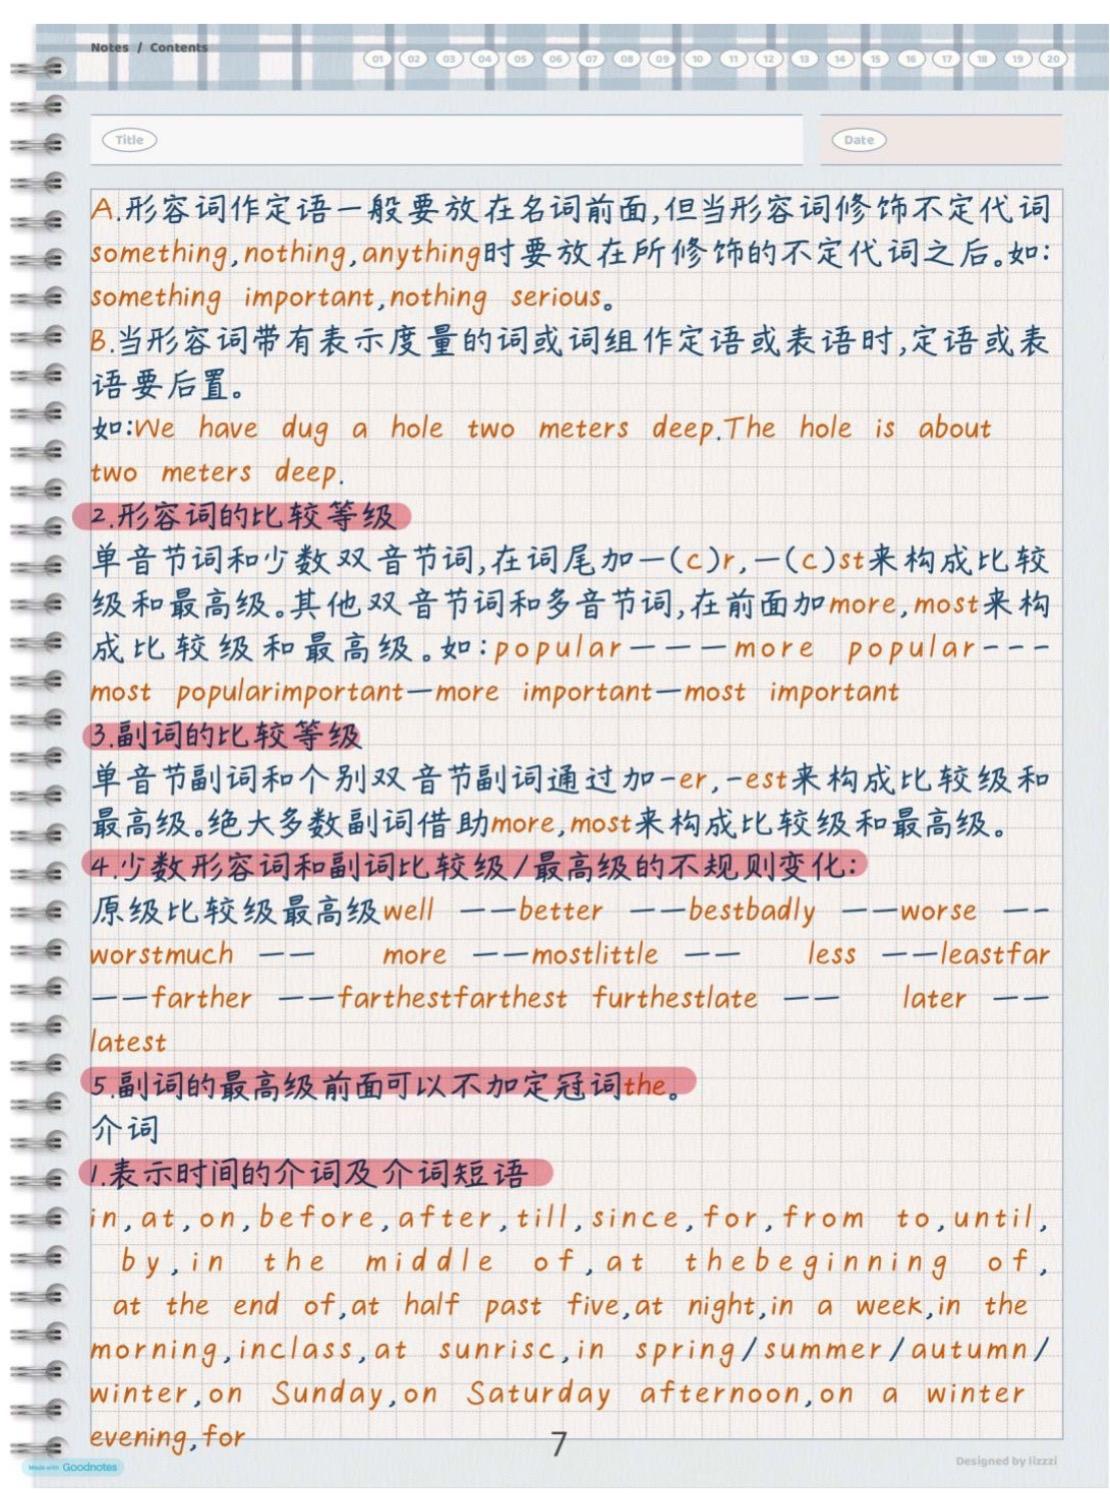 Notes / Contents
01 02 03 04 05 06 07 08 09 10 11 12 13 14 15 16 17 18 19 20
Title
Date
A.形容词作定语一般要放在名词前面,但当形容词修饰不定代词
something,nothing,anything时要放在所修饰的不定代词之后。如:
something important,nothing serious。
B.当形容词带有表示度量的词或词组作定语或表语时,定语或表
语要后置。
如:We have dug a hole two meters deep.The hole is about
two meters deep.
2.形容词的比较等级
单音节词和少数双音节词,在词尾加—(c)r,—(c)st来构成比较
级和最高级。其他双音节词和多音节词,在前面加more,most来构
成比较级和最高级。如:popular———more popular---
most popularimportant—more important—most important
3.副词的比较等级
单音节副词和个别双音节副词通过加-er,-est来构成比较级和
最高级。绝大多数副词借助more,most来构成比较级和最高级。
4.少数形容词和副词比较级/最高级的不规则变化:
原级比较级最高级well ——better ——bestbadly ——worse ——
worstmuch —— more ——mostlittle —— less ——leastfar
——farther ——farthestfarthest furthestlate —— later ——
latest
5.副词的最高级前面可以不加定冠词the。
介词
1.表示时间的介词及介词短语
in,at,on,before,after,till,since,for,from to,until,
by,in the middle of,at thebeginning of,
at the end of,at half past five,at night,in a week,in the
morning,inclass,at sunrisc,in spring/summer/autumn/
winter,on Sunday,on Saturday afternoon,on a winter
evening,for
7
Made with Goodnotes
Designed by lizzzi